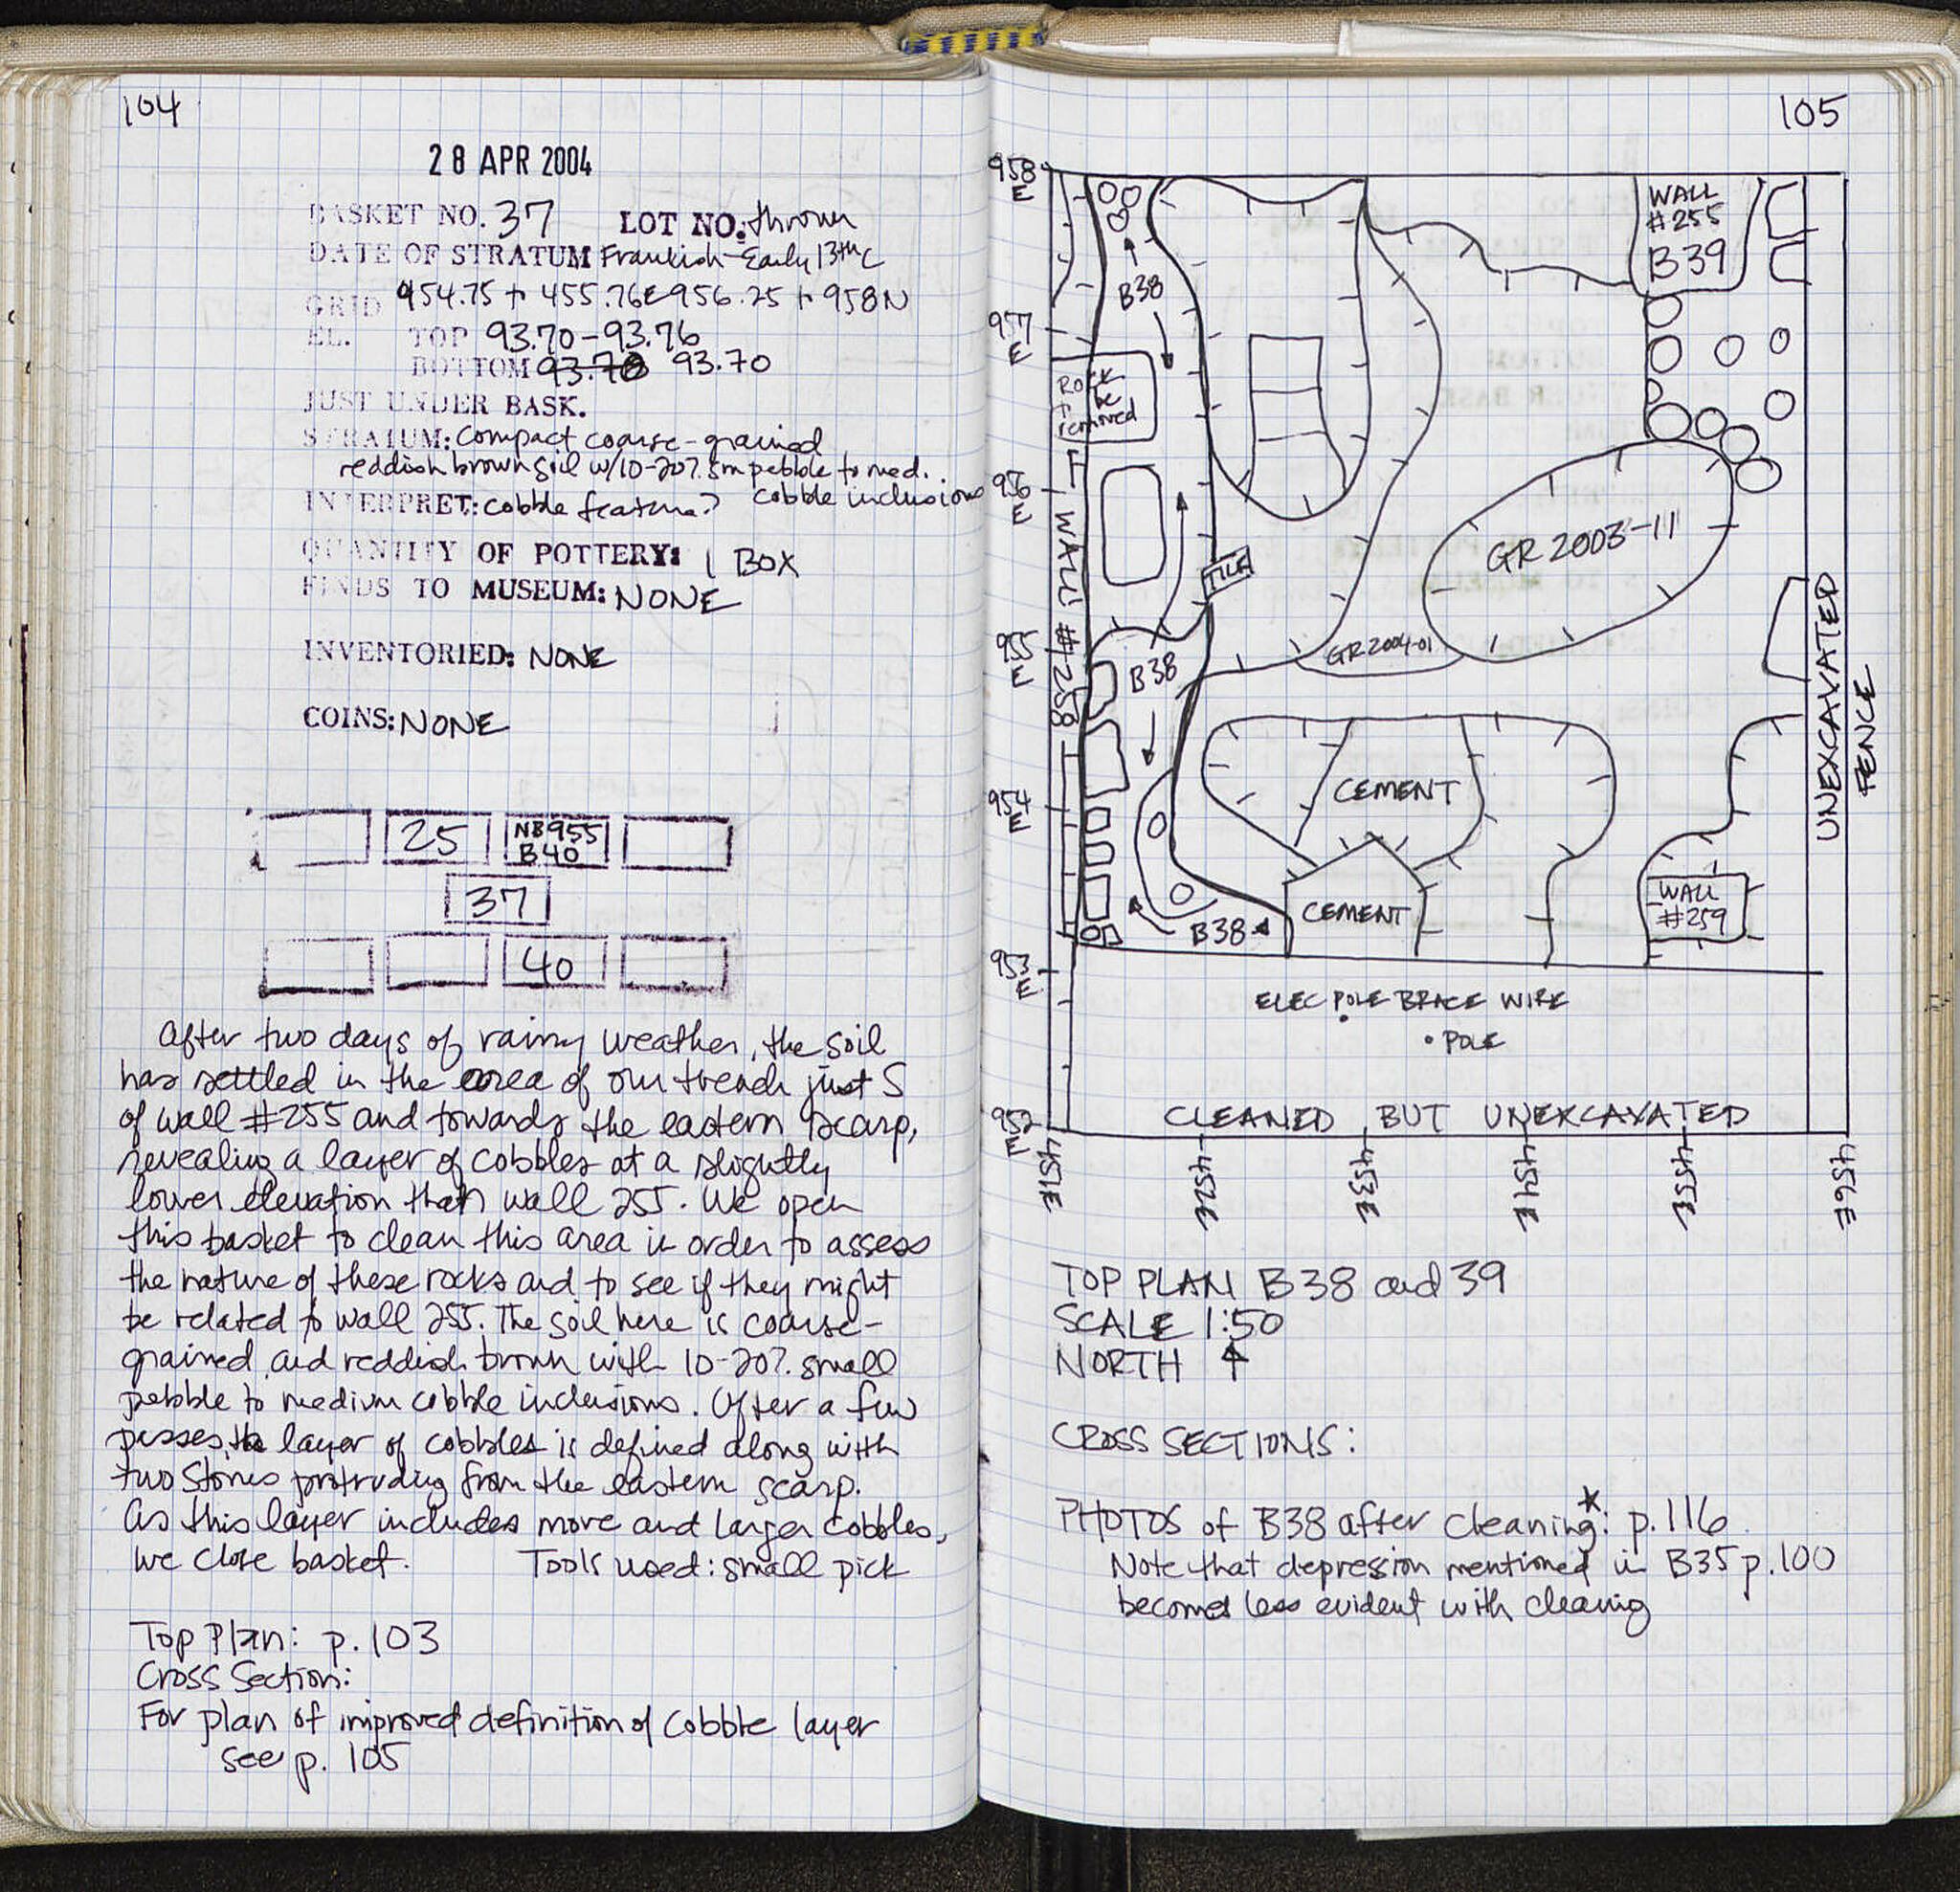 104
28 APR 2004
BASKET NO. 37 LOT NO: thrown
DATE OF STRATUM Frankish-Early 13th C
GRID 954.75 + 455.76E 956.25 + 958N
EL. TOP 93.70-93.76
BOTTOM 93.70 93.70
JUST UNDER BASK.
STRATUM: Compact coarse-grained
reddish brown soil w/10-20% sm pebble to med.
cobble inclusions
INTERPRET: cobble feature?
QUANTITY OF POTTERY: 1 BOX
FINDS TO MUSEUM: NONE
INVENTORIED: NONE
COINS: NONE
25 NB955
B40
37
40
After two days of rainy weather, the soil
has settled in the area of our trench just S
of wall #255 and towards the eastern scarp,
revealing a layer of cobbles at a slightly
lower elevation than wall 255. We open
this basket to clean this area in order to assess
the nature of these rocks and to see if they might
be related to wall 255. The soil here is coarse-
grained and reddish brown with 10-20% small
pebble to medium cobble inclusions. After a few
passes, the layer of cobbles is defined along with
two stones protruding from the eastern scarp.
As this layer includes more and larger cobbles,
we close basket. Tools used: small pick
Top Plan: p. 103
Cross Section:
For plan of improved definition of cobble layer
see p. 105
105
958
E
957
E
956
E
955
E
954
E
953
E
952
E
WALL
#255
B39
B38
Rock
to be
removed
WALL #258
TILE
GR 2003-11
GR 2004-01
B38
CEMENT
CEMENT
B38
WALL
#259
UNEXCAVATED
FENCE
ELEC POLE BRACE WIRE
• POLE
CLEANED BUT UNEXCAVATED
451E
452E
453E
454E
455E
456E
TOP PLAN B38 and 39
SCALE 1:50
NORTH ↑
CROSS SECTIONS:
PHOTOS of B38 after cleaning*: p. 116
Note that depression mentioned in B35 p. 100
becomes less evident with cleaning